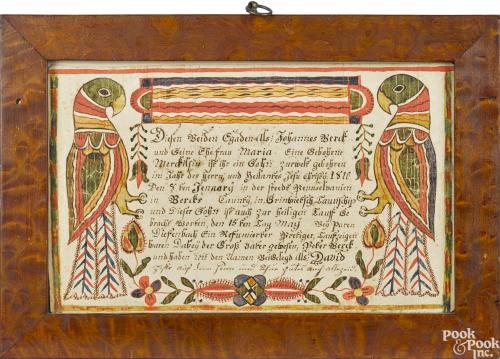 Diesen Beiden Egadenells, Johannes Berck
und Seine Ehe frau Maria Eine Gebohrne
Merckilsin ist ihr ein Sohn zurwelt gebohren
im Jahr der Herrn und Heilandes Jesu Christÿ 1810
Den 8 ten Jennarÿ in der steeds Pennselvanien
in Bercks Caunty, in Grünwietsch Taunschip
und Dieser Sohn ist auch Zur heiligen Tauf Ge
bracht Worten, den 18 ten Tag Maÿ Beÿ Paren
Ein Refformierder Prediger, Taufzeigen
waren Dabeÿ der Groß vater gewesen, Peter Berck
und haben ihm den Namen Beÿgelegd alls, David
POOK
& POOK
Inc.